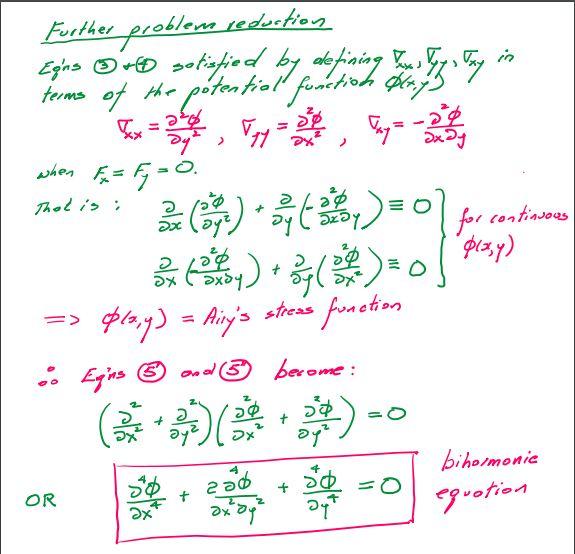 Further problem reduction
Eq'ns ③ + ④ satisfied by defining σxx, σyy, σxy in
terms of the potential function ϕ(x,y)
σxx = ∂²ϕ/∂y² , σyy = ∂²ϕ/∂x² , σxy = -∂²ϕ/∂x∂y
when Fx = Fy = 0.
That is : ∂/∂x (∂²ϕ/∂y²) + ∂/∂y (-∂²ϕ/∂x∂y) ≡ 0
∂/∂x (-∂²ϕ/∂x∂y) + ∂/∂y (∂²ϕ/∂x²) ≡ 0
for continuous
ϕ(x,y)
=> ϕ(x,y) = Airy's stress function
∴ Eq'ns ⑤' and ⑤" become :
(∂²/∂x² + ∂²/∂y²)(∂²ϕ/∂x² + ∂²ϕ/∂y²) = 0
OR ∂⁴ϕ/∂x⁴ + 2∂⁴ϕ/∂x²∂y² + ∂⁴ϕ/∂y⁴ = 0
biharmonic
equation